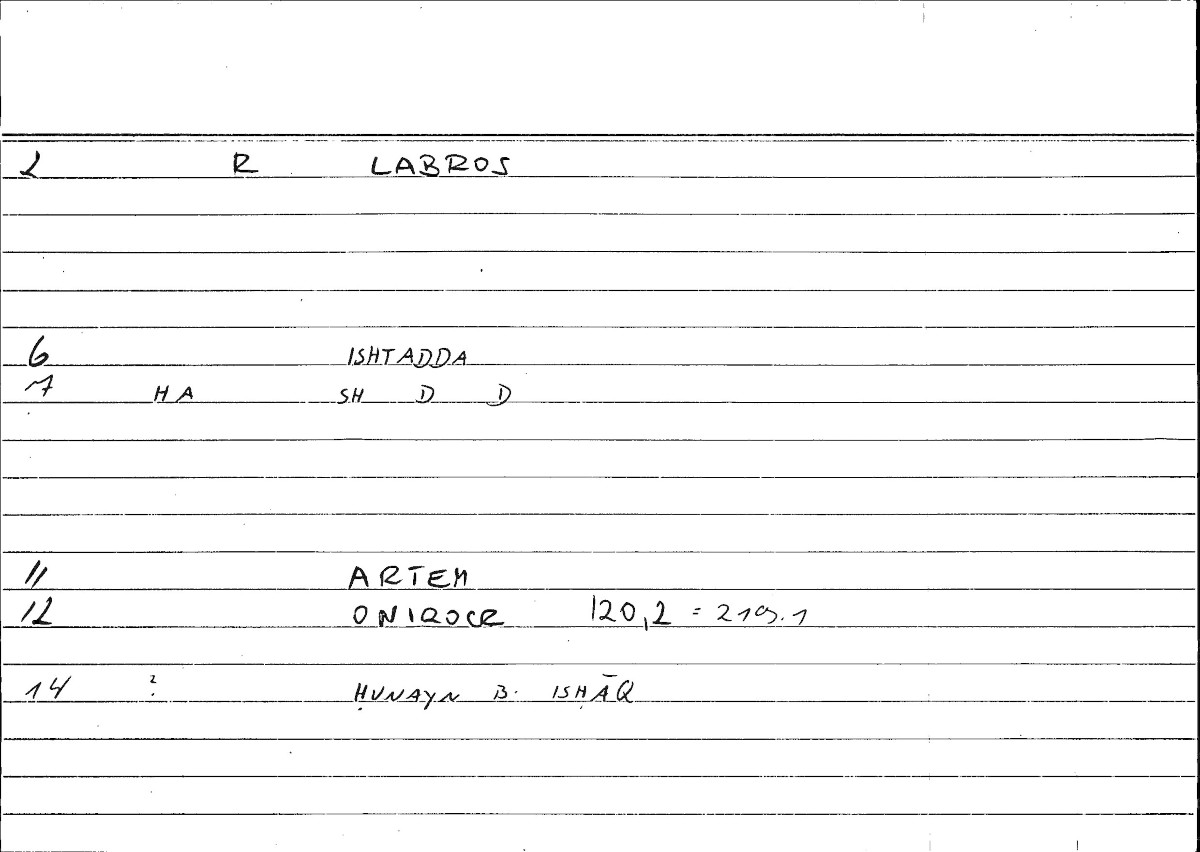 2 R LABROS
6 ISHTADDA
7 HA SH D D
11 ARTEM
12 ONIROCR 120,2 = 219.1
14 ? ḤUNAYN B. ISḤĀQ